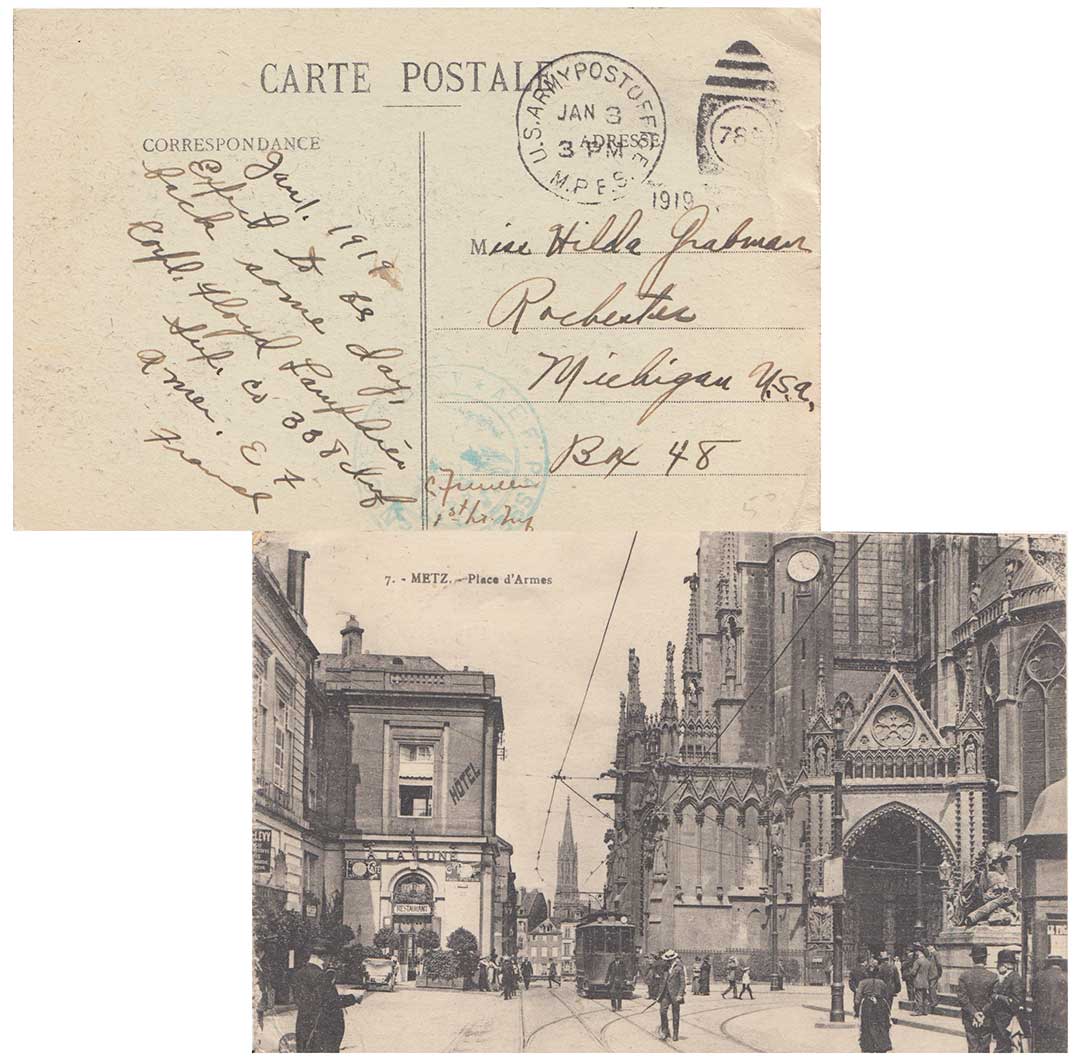 CARTE POSTALE
CORRESPONDANCE
ADRESSE
U.S. ARMY POST OFFICE
JAN 3
3 PM
M.P.E.S.
1919
78
Jan 1. 1919
Expect to be
back some day.
Corpl. Floyd
Sup. Co 338 Inf
Amer. E F
France
Miss Hilda Grabman
Rochester
Michigan U.S.A.
Box 48
A.E.F. PASS
1st Lt. Inf
7. - METZ. - Place d'Armes
HOTEL
A LA LUNE
RESTAURANT
LEVY